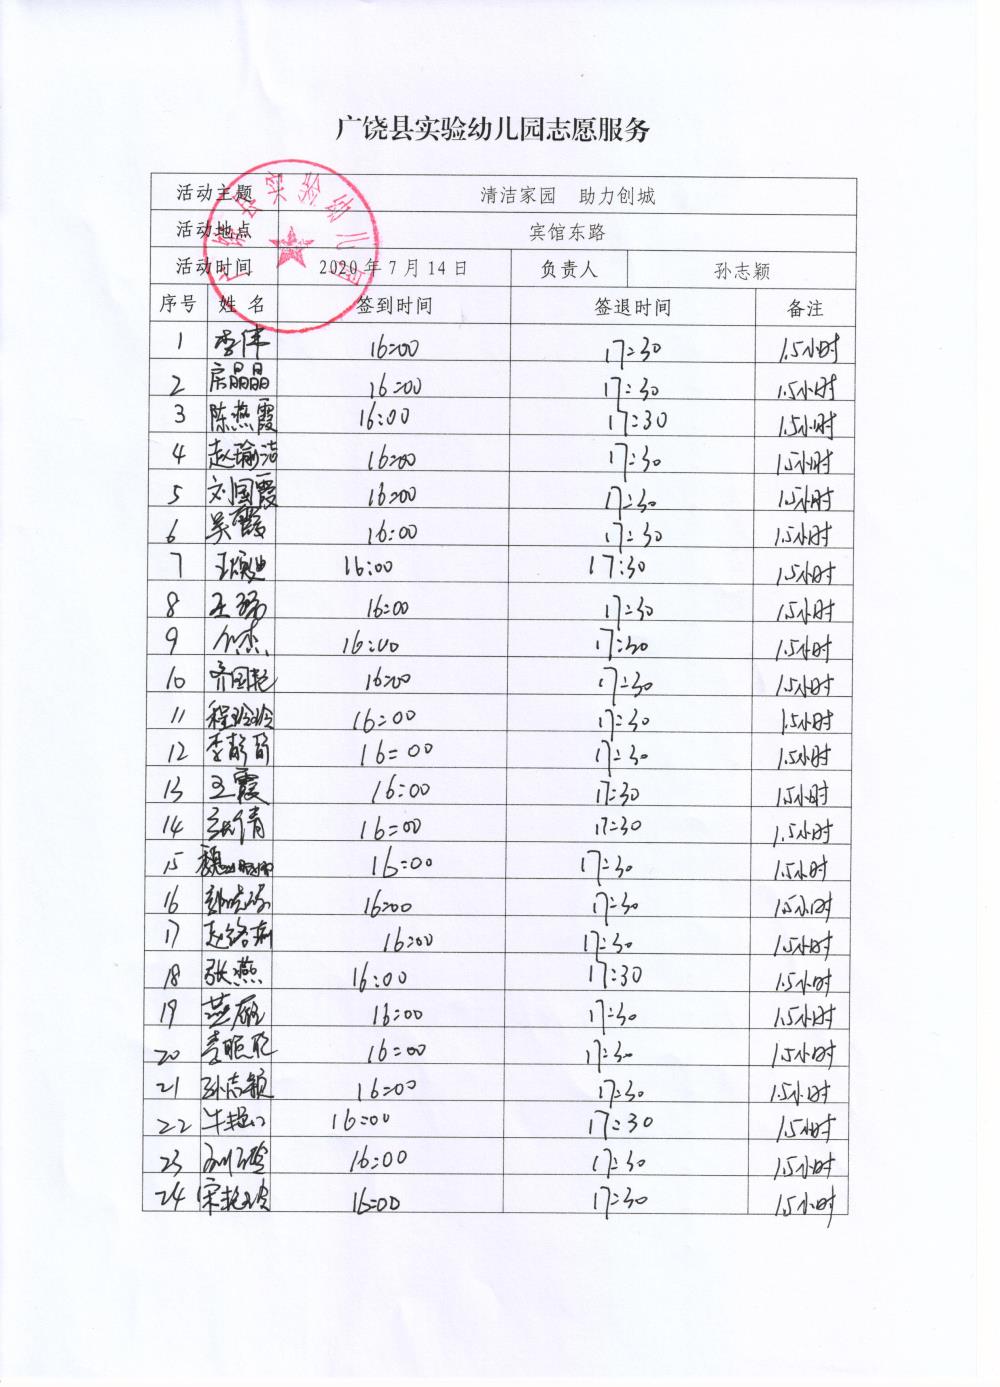 广饶县实验幼儿园志愿服务
活动主题 清洁家园 助力创城
活动地点 宾馆东路
活动时间 2020年7月14日 负责人 孙志颖
序号 姓名 签到时间 签退时间 备注
1 李伟 16:00 17:30 1.5小时
2 房晶晶 16:00 17:30 1.5小时
3 陈燕霞 16:00 17:30 1.5小时
4 赵瑜洁 16:00 17:30 1.5小时
5 刘国霞 16:00 17:30 1.5小时
6 吴霞 16:00 17:30 1.5小时
7 16:00 17:30 1.5小时
8 王 16:00 17:30 1.5小时
9 16:00 17:30 1.5小时
10 齐国艳 16:00 17:30 1.5小时
11 程玲玲 16:00 17:30 1.5小时
12 李静静 16:00 17:30 1.5小时
13 王霞 16:00 17:30 1.5小时
14 张倩 16:00 17:30 1.5小时
15 魏 16:00 17:30 1.5小时
16 16:00 17:30 1.5小时
17 赵 16:00 17:30 1.5小时
18 张燕 16:00 17:30 1.5小时
19 燕 16:00 17:30 1.5小时
20 李聪聪 16:00 17:30 1.5小时
21 孙志颖 16:00 17:30 1.5小时
22 牛艳 16:00 17:30 1.5小时
23 16:00 17:30 1.5小时
24 宋艳玲 16:00 17:30 1.5小时